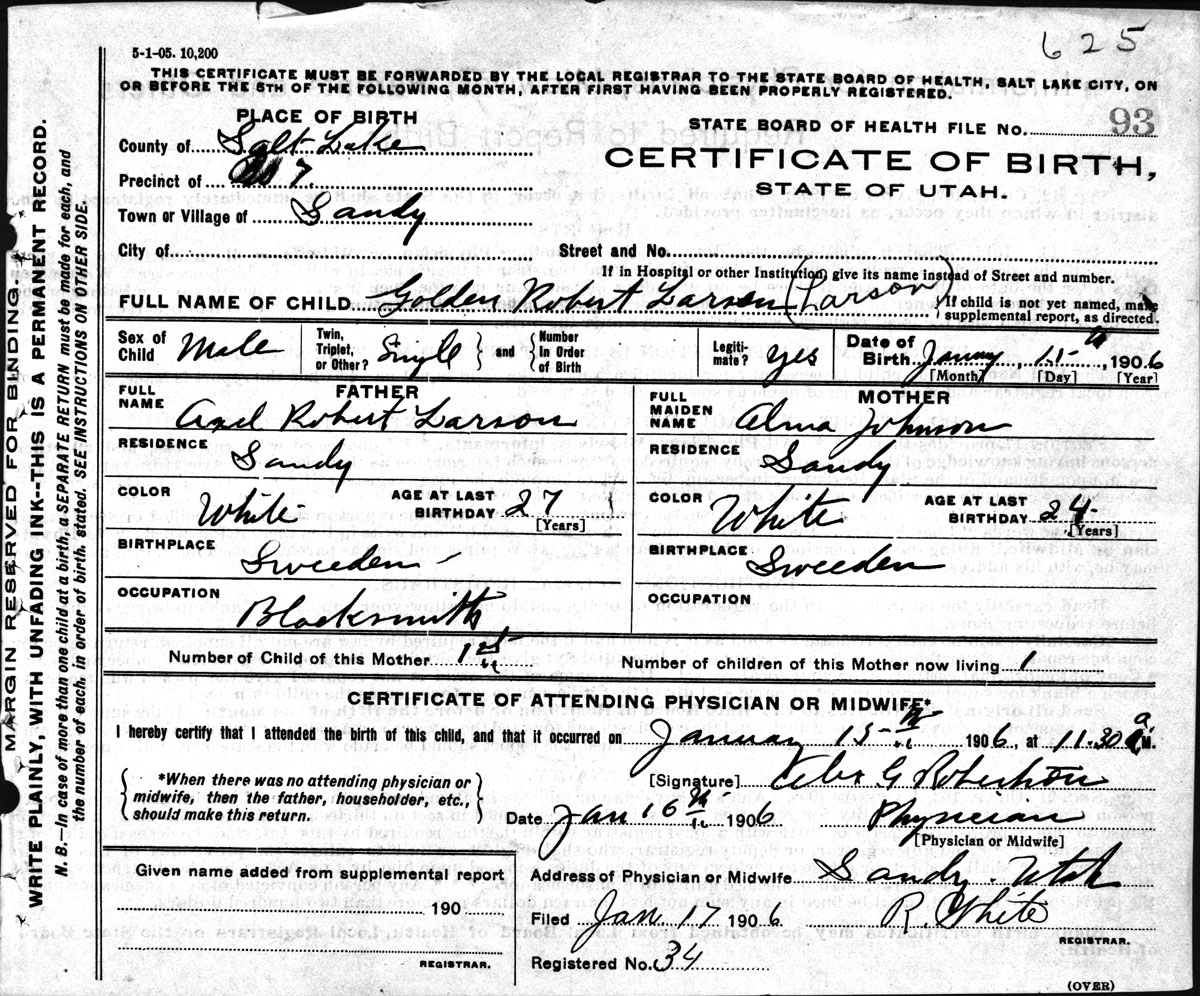 625
5-1-05. 10,200
THIS CERTIFICATE MUST BE FORWARDED BY THE LOCAL REGISTRAR TO THE STATE BOARD OF HEALTH, SALT LAKE CITY, ON
OR BEFORE THE 5TH OF THE FOLLOWING MONTH, AFTER FIRST HAVING BEEN PROPERLY REGISTERED.
PLACE OF BIRTH
STATE BOARD OF HEALTH FILE NO. 93
County of Salt Lake
CERTIFICATE OF BIRTH,
STATE OF UTAH.
Precinct of 7
Town or Village of Sandy
City of Street and No.
If in Hospital or other Institution, give its name instead of Street and number.
FULL NAME OF CHILD Golden Robert Larson (Larson) If child is not yet named, make
supplemental report, as directed.
Sex of Child Male Twin, Triplet, or Other? Single and Number In Order of Birth Legitimate? yes Date of Birth January 15th, 1906
[Month] [Day] [Year]
FATHER
FULL NAME Axel Robert Larson
RESIDENCE Sandy
COLOR White AGE AT LAST BIRTHDAY 27
[Years]
BIRTHPLACE Sweeden
OCCUPATION Blacksmith
MOTHER
FULL MAIDEN NAME Alma Johnson
RESIDENCE Sandy
COLOR White AGE AT LAST BIRTHDAY 24
[Years]
BIRTHPLACE Sweeden
OCCUPATION
Number of Child of this Mother 1st Number of children of this Mother now living 1
CERTIFICATE OF ATTENDING PHYSICIAN OR MIDWIFE*
I hereby certify that I attended the birth of this child, and that it occurred on January 15th 1906, at 11.30 a M.
*When there was no attending physician or
midwife, then the father, householder, etc.,
should make this return.
[Signature] G Robertson
Date Jan 16th 1906 Physician
[Physician or Midwife]
Given name added from supplemental report
190
REGISTRAR.
Address of Physician or Midwife Sandy Utah
Filed Jan 17 1906 R White
REGISTRAR.
Registered No. 34
(OVER)
MARGIN RESERVED FOR BINDING.
WRITE PLAINLY, WITH UNFADING INK--THIS IS A PERMANENT RECORD.
N. B.—In case of more than one child at a birth, a SEPARATE RETURN must be made for each, and
the number of each, in order of birth, stated. SEE INSTRUCTIONS ON OTHER SIDE.